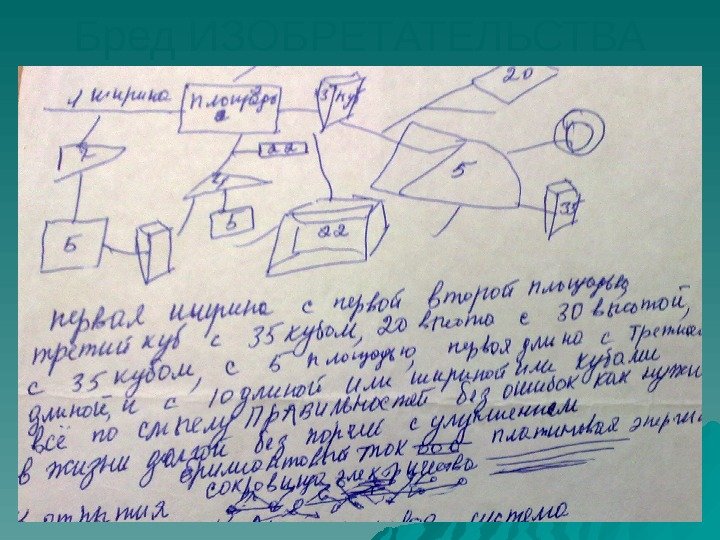 Бред ИЗОБРЕТАТЕЛЬСТВА
1 ширина
площадь
2
3
куб
20
1 2
22
4
5
5
6
35
22
первая ширина с первой второй площадью
третий куб с 35 кубом, 20 высота с 30 высотой,
с 35 кубом, с 5 площадью, первая длина с третьей
длиной, и с 10 длиной или шириной или кубами
всё по смыслу правильностей без ошибок как нужны
в жизни долгой без порчи с улучшением
бриллиантовый ток платиновая энергия
сокровища электричества
открытия система